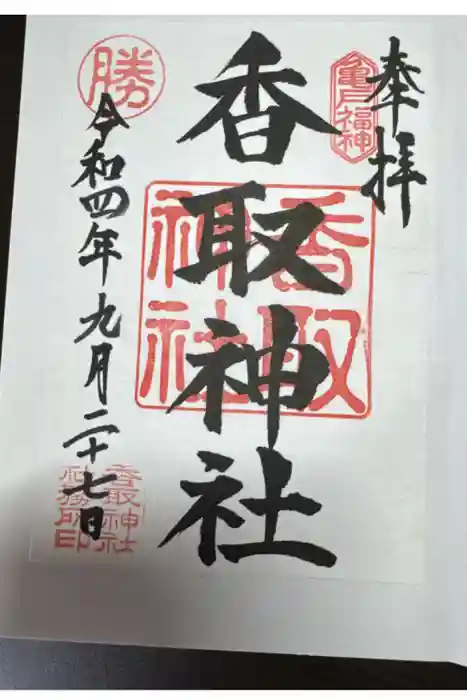 奉拝
亀戸福神
香取神社
香取神社
勝
令和四年九月二十七日
香取神社
社務所印